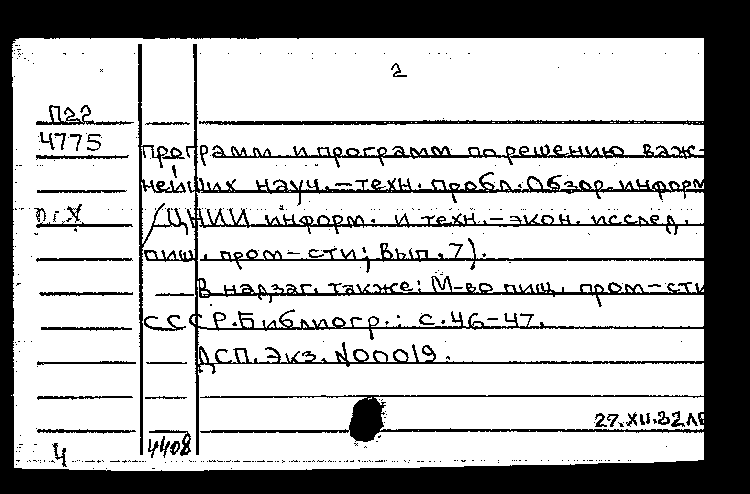 2
П22
4775 программ и программ по решению важ-
нейших науч.-техн. пробл. Обзор. информ
о г. X /ЦНИИ информ. и техн.-экон. исслед.
пищ. пром-сти; Вып. 7).
В надзаг. также: М-во пищ. пром-сти
СССР. Библиогр.: с. 46-47.
ДСП. Экз. N00019.
27.XII.82
4 4408